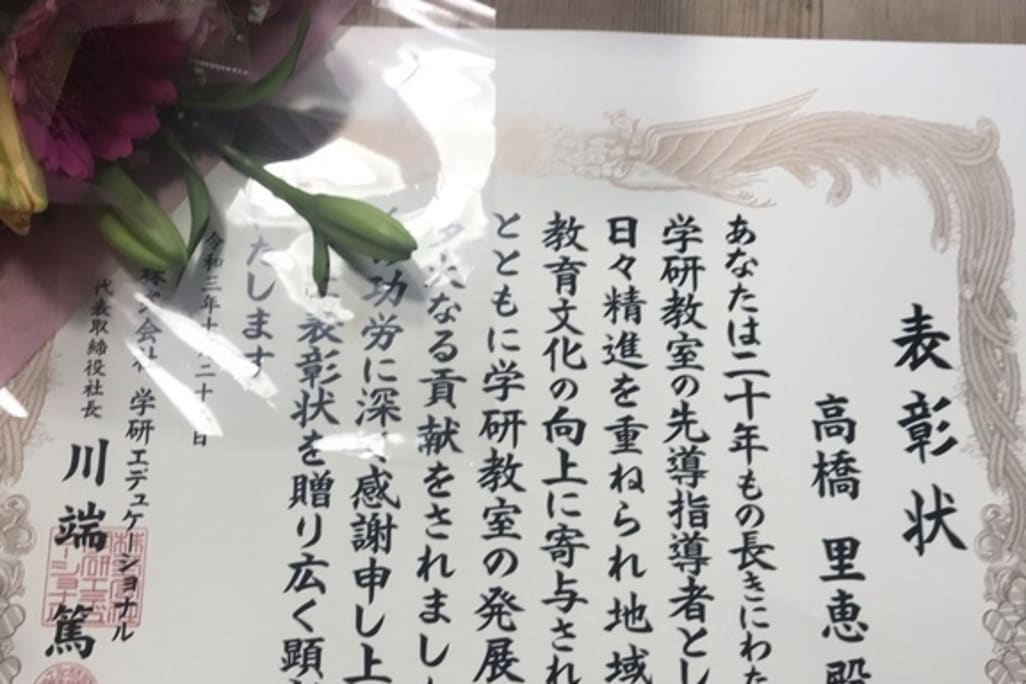 表彰状
高橋 里恵 殿
あなたは二十年もの長きにわた
学研教室の先導指導者とし
日々精進を重ねられ地域
教育文化の向上に寄与され
とともに学研教室の発展
大なる貢献をされまし
功労に深 感謝申し上
表彰状を贈り広く顕
たします
令和三年十 二十 日
株式会社 学研エデュケーショナル
代表取締役社長 川端 篤